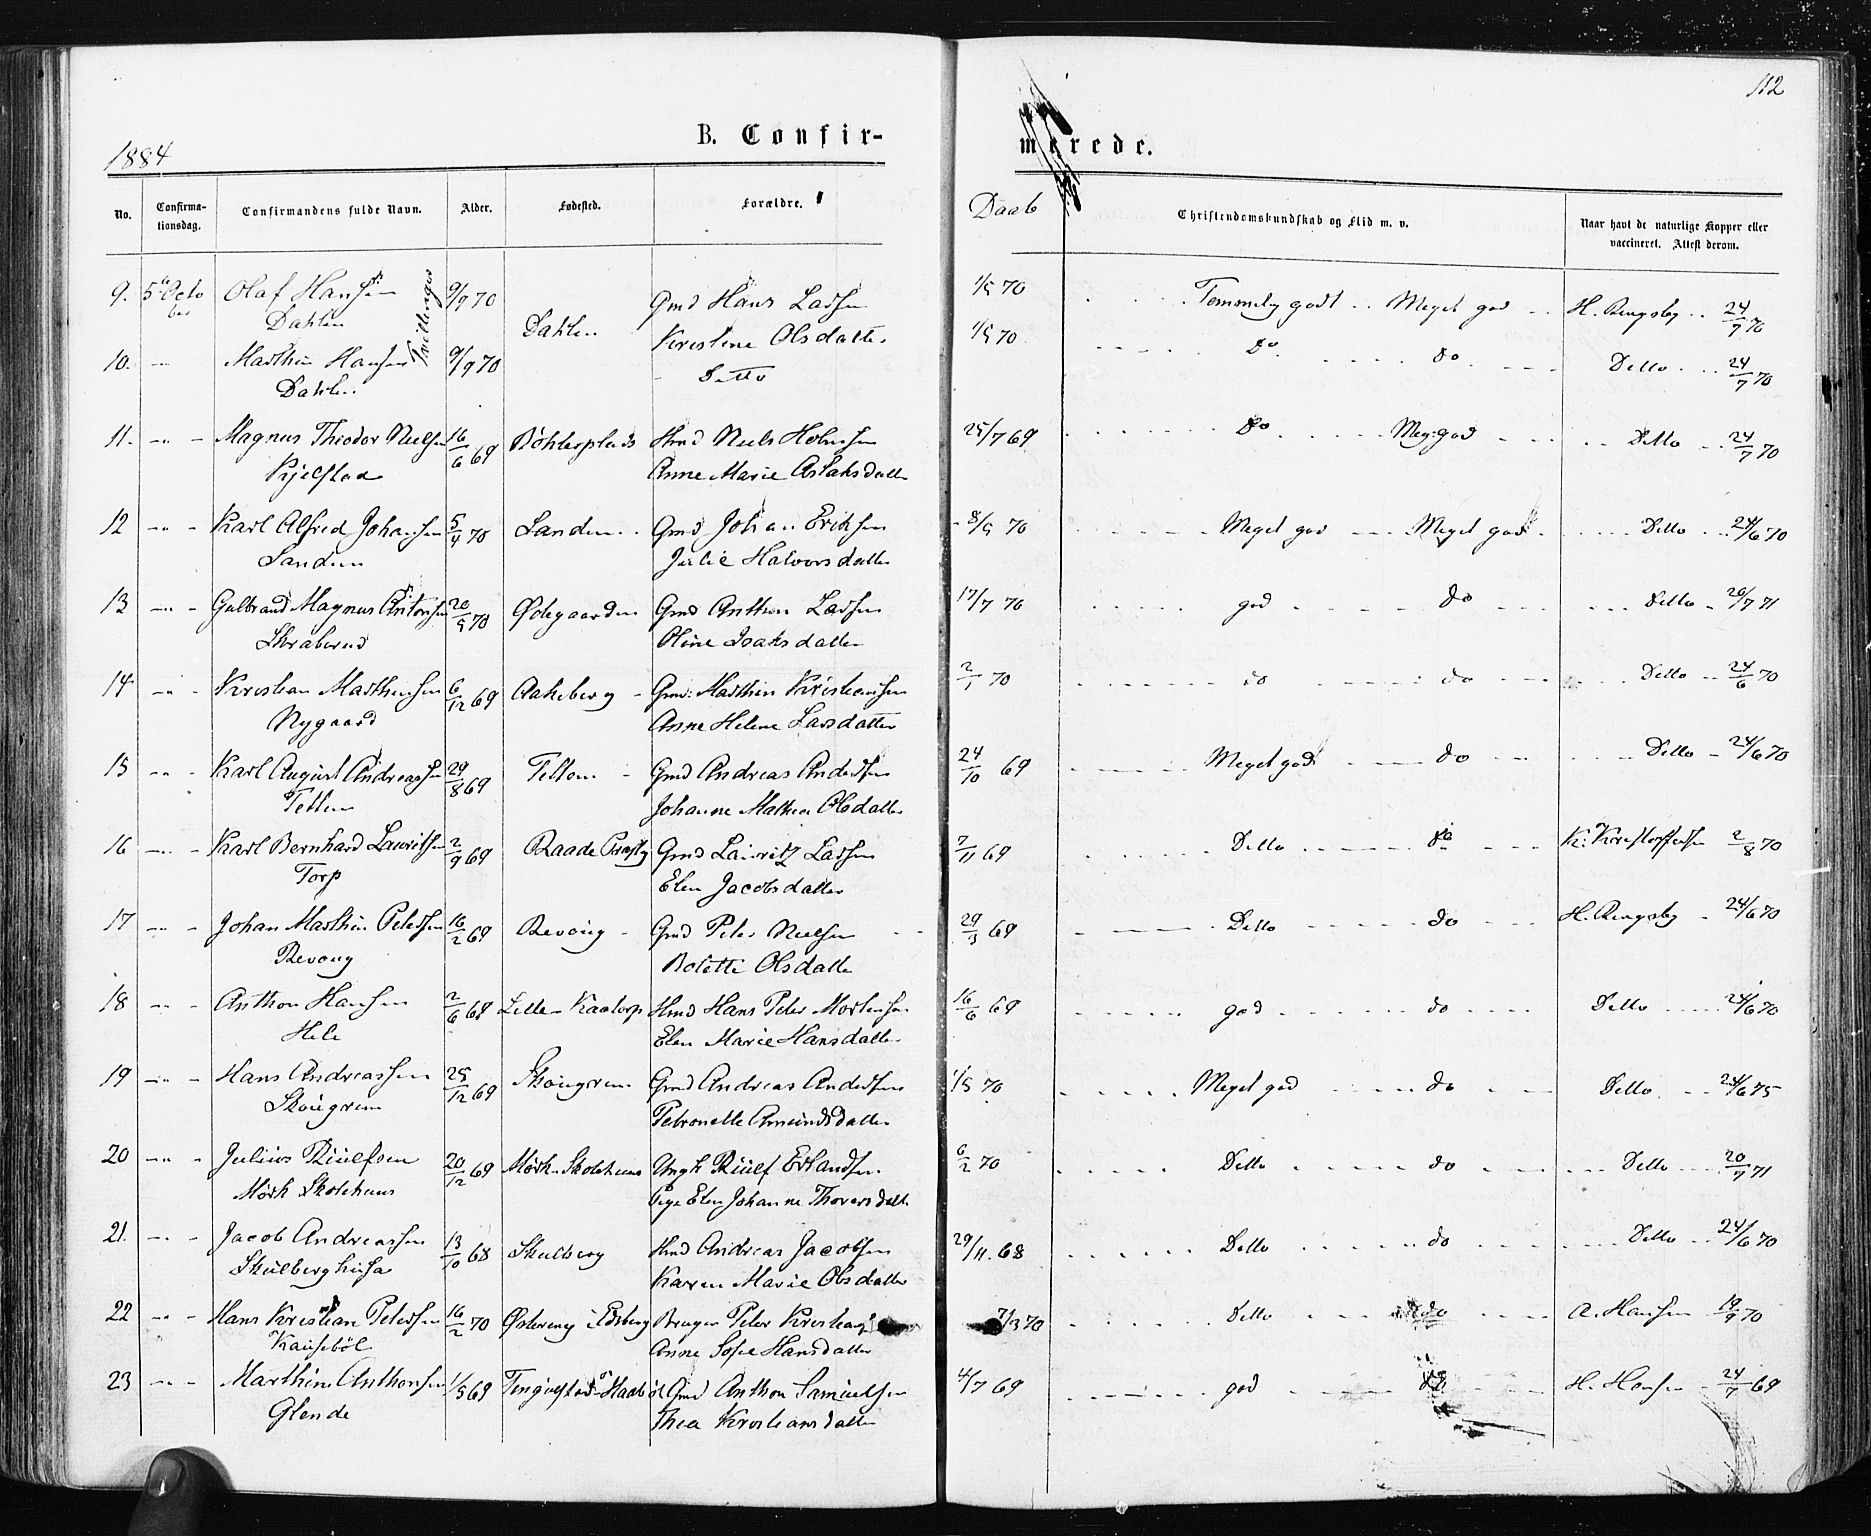 112
1884
B. Confir-
merede.
No.
Confirma-
tionsdag.
Confirmandens fulde Navn.
Alder.
Fødested.
Forældre.
Daab
Christendomskundskab og Flid m. v.
Naar havt de naturlige Kopper eller
vaccineret. Attest derom.
9. 5te Octo Olaf Hansen 9/9 70 Gmd Hans Larsen 1/5 70 Temmelig godt Meget god H. Ringsby 24/7 70
ber Dahlen Tvillinger Dahlen Kristine Olsdatter
10. Marthin Hansen 9/9 70 Ditto 1/5 70 Do do Ditto 24/7 70
Dahlen
11. Magnus Theodor Nielsen 16/6 69 Böhlerplads Hmd Niels Holmsen 25/7 69 Do Meg. god Ditto 24/7 70
Kjelstad Anne Marie Aslaksdatter
12 Karl Alfred Johansen 5/4 70 Sanden Gmd Johan Eriksen 8/5 70 Meget god Meget god Ditto 24/6 70
Sanden Julie Halvorsdatter
13 Gulbrand Magnus Antonsen 20/5 70 Ødegaarden Gmd Anthon Larsen 17/7 70 god do Ditto 20/7 71
Skraberud Oline Isaksdatter
14 Kristian Marthinsen 6/12 69 Aakeberg Gmd. Marthin Kristiansen 2/1 70 do do Ditto 24/6 70
Nygaard Anne Helene Larsdatter
15 Karl August Andreassen 29/8 69 Gmd Andreas Andersen 24/10 69 Meget god do Ditto 24/6 70
Johanne Mathea Olsdatter
16 Karl Bernhard Lauritsen 2/9 69 Raade Præstg Gmd Lauritz Larsen 7/11 69 Ditto do K. Kristoffersen 2/8 70
Torp Elen Jacobsdatter
17 Johan Marthin Petersen 16/2 69 Revoug Gmd Peter Nielsen 29/3 69 Ditto do H. Ringsby 24/6 70
Revoug Bolette Olsdatter
18 Anthon Hansen 2/6 68 Lille-Kaatorp Hmd Hans Peter Mortensen 16/6 69 god do Ditto 24/6 70
Hele Elen Marie Hansdatter
19 Hans Andreassen 25/12 69 Skougrem Gmd Andreas Andersen 1/5 70 Meget god do Ditto 24/6 75
Skougrem Petronelle Amundsdatter
20 Julius Riulfsen 20/12 69 Mörk Skolehuus Ungk Riulf Erlandsen 6/2 70 Ditto do Ditto 20/7 71
Mörk Skolehuus Pige Elen Johanne Thorersdatter
21. Jacob Andreassen 13/10 68 Skulberg Hmd Andreas Jacobsen 29/11 68 Ditto do Ditto 24/6 70
Skulberghusa Karen Marie Olsdatter
22 Hans Kristian Petersen 16/2 70 Østereng i Edsberg Bruger Peter Kristiansen 7/3 70 Ditto do A. Hansen 19/9 70
Anne Sofie Hansdatter
23 Marthin Anthonsen 1/5 69 Gmd Anthon Samuelsen 4/7 69 god do H. Hansen 24/7 69
Glende Thea Kristiansdatter